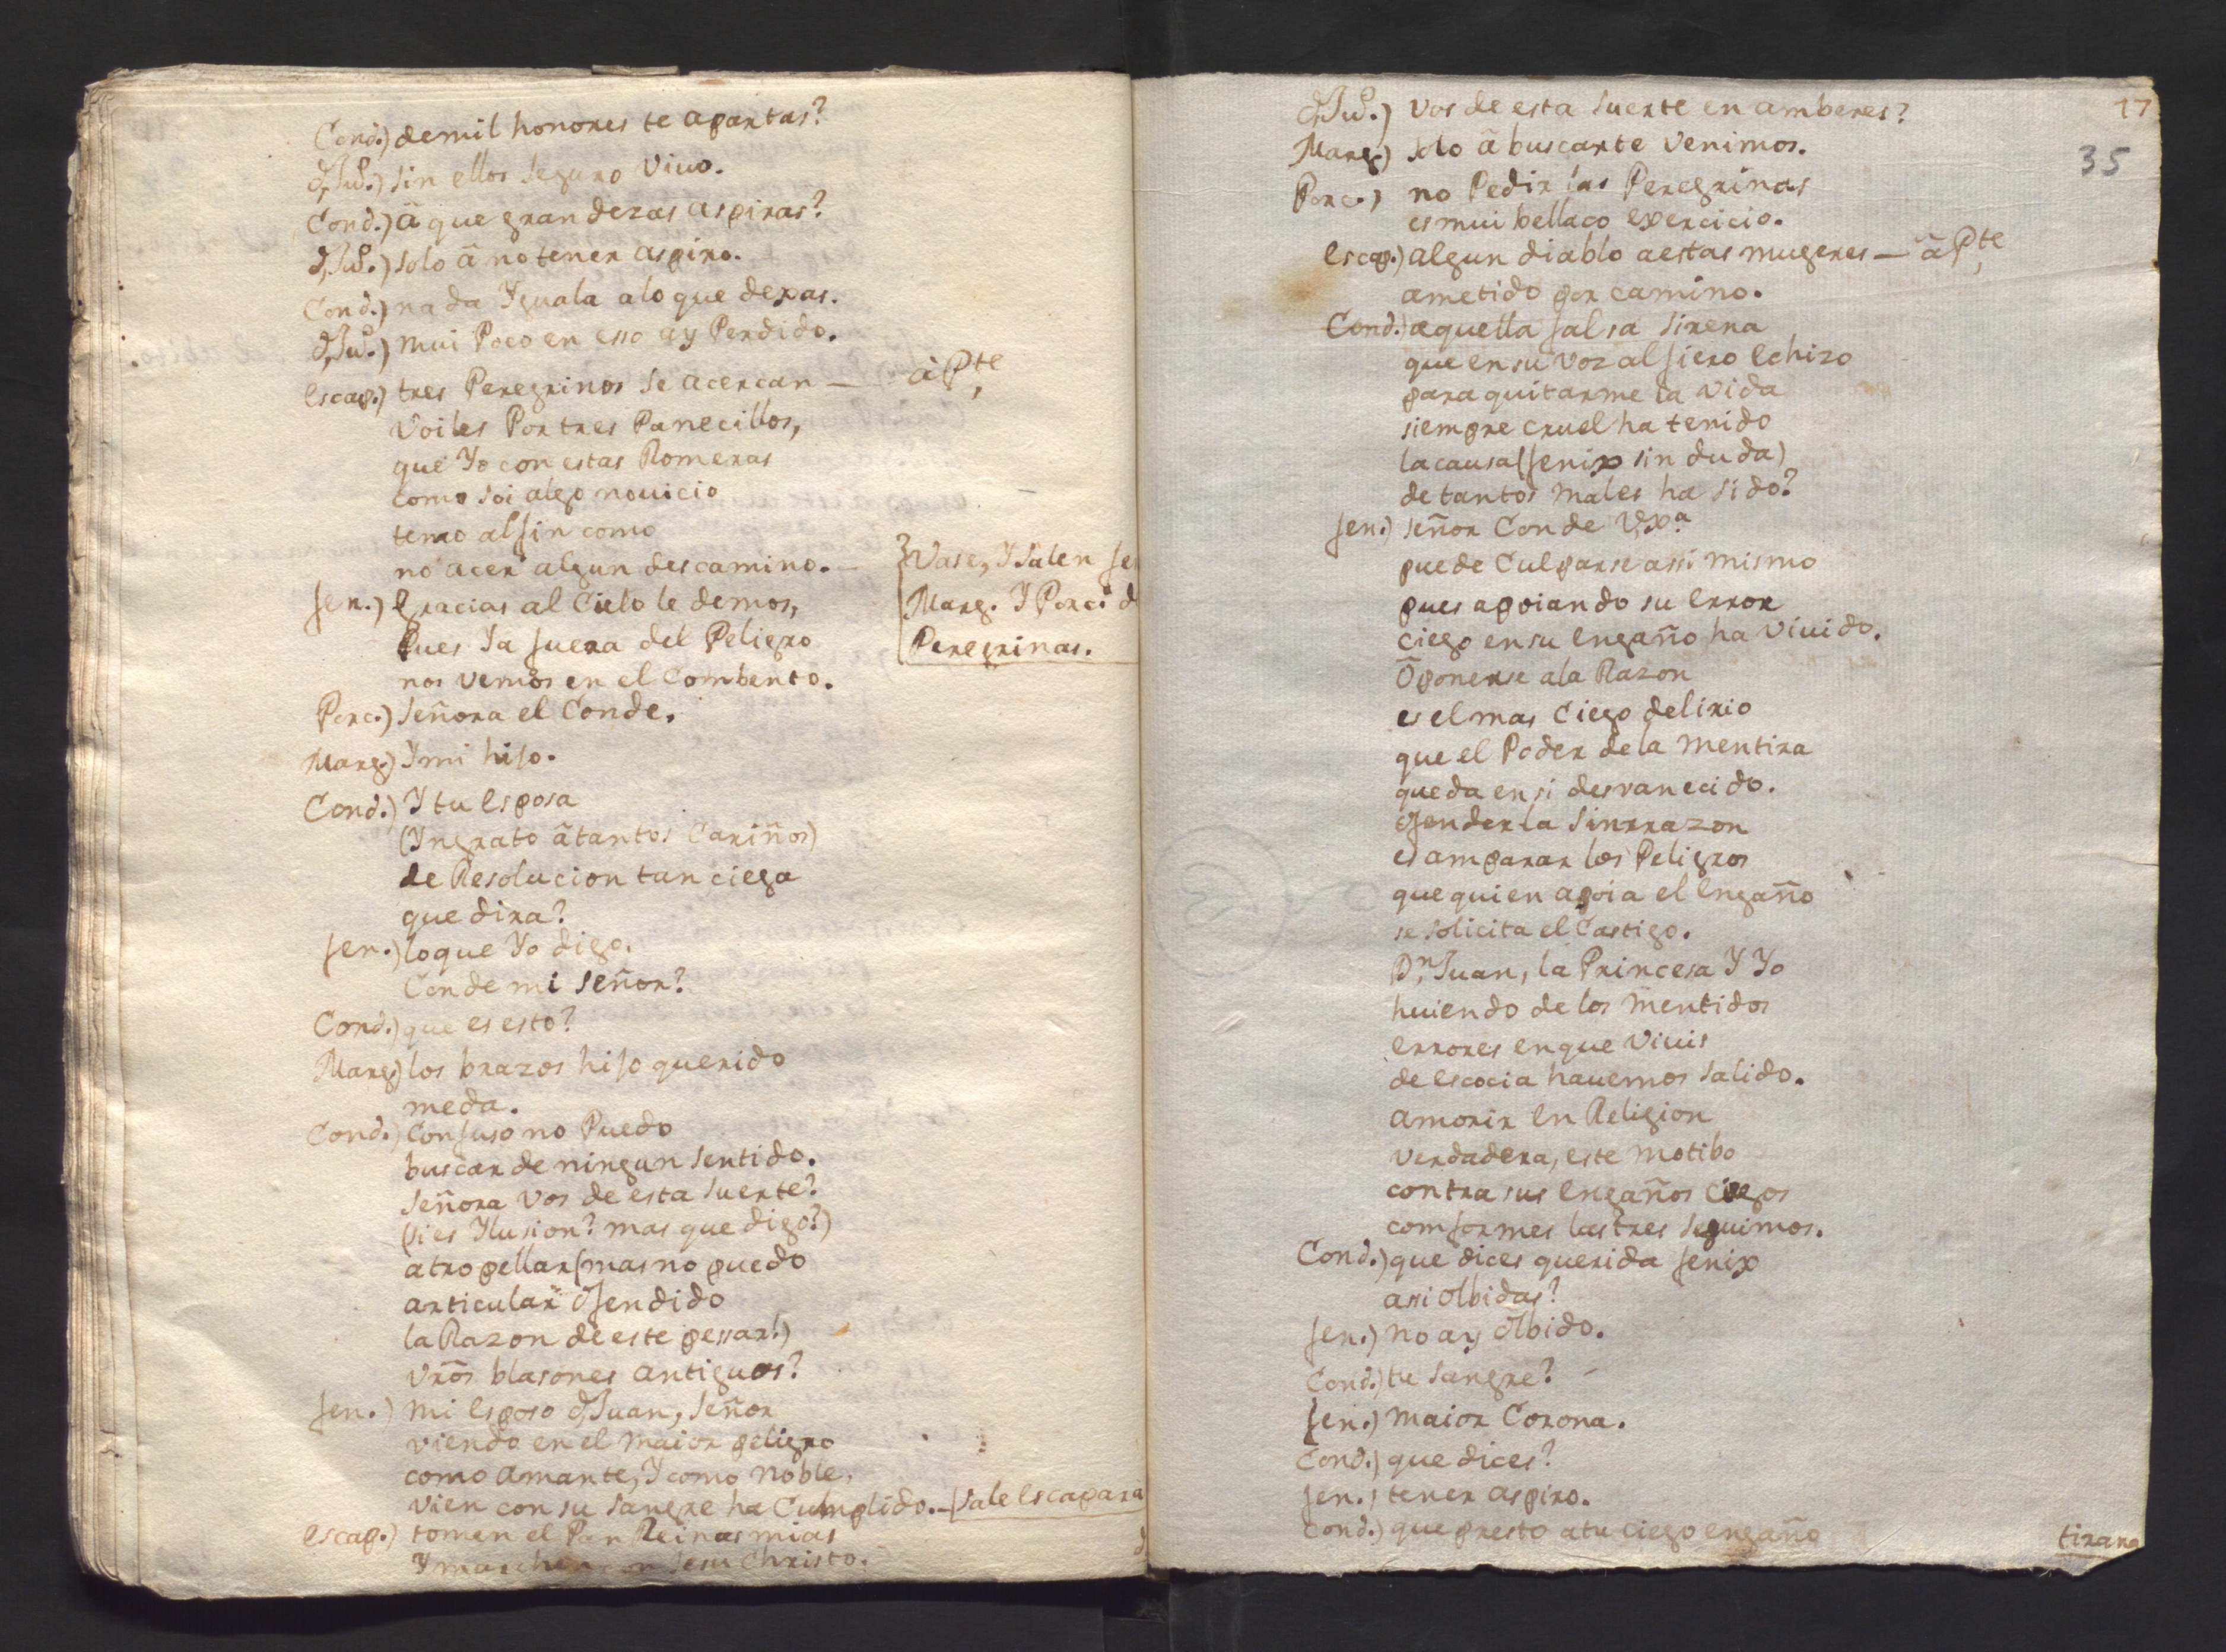 Cond.) demil honores te apartas?
d,Juº.) sin ellos seguro viuo.
Cond.) â que grandezas aspiras?
d,Juº.) solo â no tener aspiro.
Cond.) nada Yguala alo que dexas.
d,Juº.) mui Poco en esso ay Perdido.
escap.) tres Peregrinos se acercan — âPte,
Voiles Por tres Panecillos,
que Yo con estas Romeras
como soi algo nouicio
temo alfin como
no acer algun descamino. —
}Vase, Y Salen fe
Marg. Y Porc. d
Peregrinas.
fen.) gracias al Cielo le demos,
Pues Ya fuera del Peligro
nos vemos en el Combento.
Porc.) Señora el Conde.
Marg.) Y mi hijo.
Cond.) Y tu esposa
(Yngrato âtantos Cariños)
de Resolucion tan ciega
que dira?
fen.) loque Yo digo.
Conde mi señor?
Cond.) que es esto?
Marg.) los brazos hijo querido
meda.
Cond.) Confuso no Puedo
buscar de ningun sentido.
Señora vos de esta suerte?
(si es Ylusion? mas que digo?)
atropellar (mas no puedo
articular ôfendido
la Razon de este pessar!)
vrõs blasones antiguos?
fen.) mi esposo d,Juan, señor
viendo en el maior peligro
como amante, Y como noble,
vien con su sangre ha Cumplido. — (sale escapara
escap.) tomen el Pan Reinas mias
Y marchen con Jesu Christo.
17
35
d,Juº.) vos de esta suerte en amberes?
Marg.) solo â buscarte venimos.
Porc.) no Pedir las Peregrinas
es mui bellaco exercicio.
escap.) algun diablo aestas mugeres — âPte,
ametido por camino.
Cond.) aquella falsa sirena
que en su voz alfiero echizo
para quitarme la vida
siempre cruel ha tenido
la causa (fenix sin duda)
de tantos males ha sido?
fen.) señor Conde V,xª
puede Culparse assi mismo
pues apoiando su error
ciego en su engaño ha viuido.
Ôponerse ala Razon
es el mas Ciego delirio
que el Poder de la mentira
queda en si desvanecido.
ôfender la sinrrazon
es amparar los Peligros
que quien apoia el engaño
se solicita el Castigo.
Dn, Juan, la Princesa Y Yo
huiendo de los mentidos
errores enque viuis
de escocia hauemos salido.
amorir en Religion
verdadera, este motibo
contra sus engaños ciegos
comformes las tres seguimos.
Cond.) que dices querida fenix
assi olbidas?
fen.) no ay ôlbido.
Cond.) tu sangre?
fen.) maior Corona.
Cond.) que dices?
fen.) tener aspiro.
Cond.) que presto atu ciego engaño
tirana